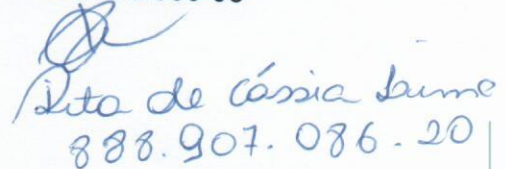 Rita de Cássia Laime
888.907.086-20